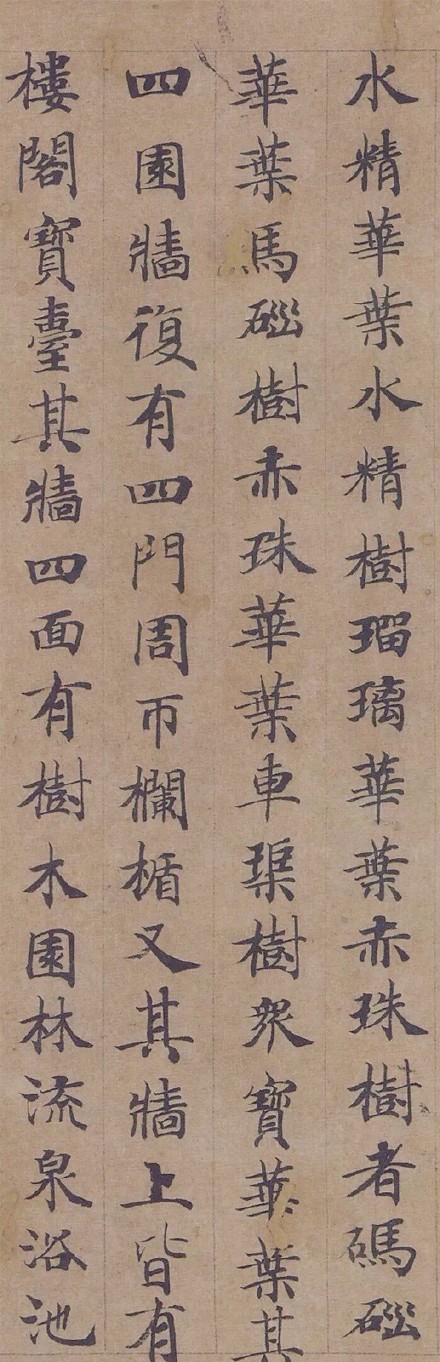 水精華葉水精樹瑠璃華葉赤珠樹者碼碯
華葉馬碯樹赤珠華葉車璖樹衆寶華葉其
四園牆復有四門周帀欄楯又其牆上皆有
樓閣寶臺其牆四面有樹木園林流泉浴池